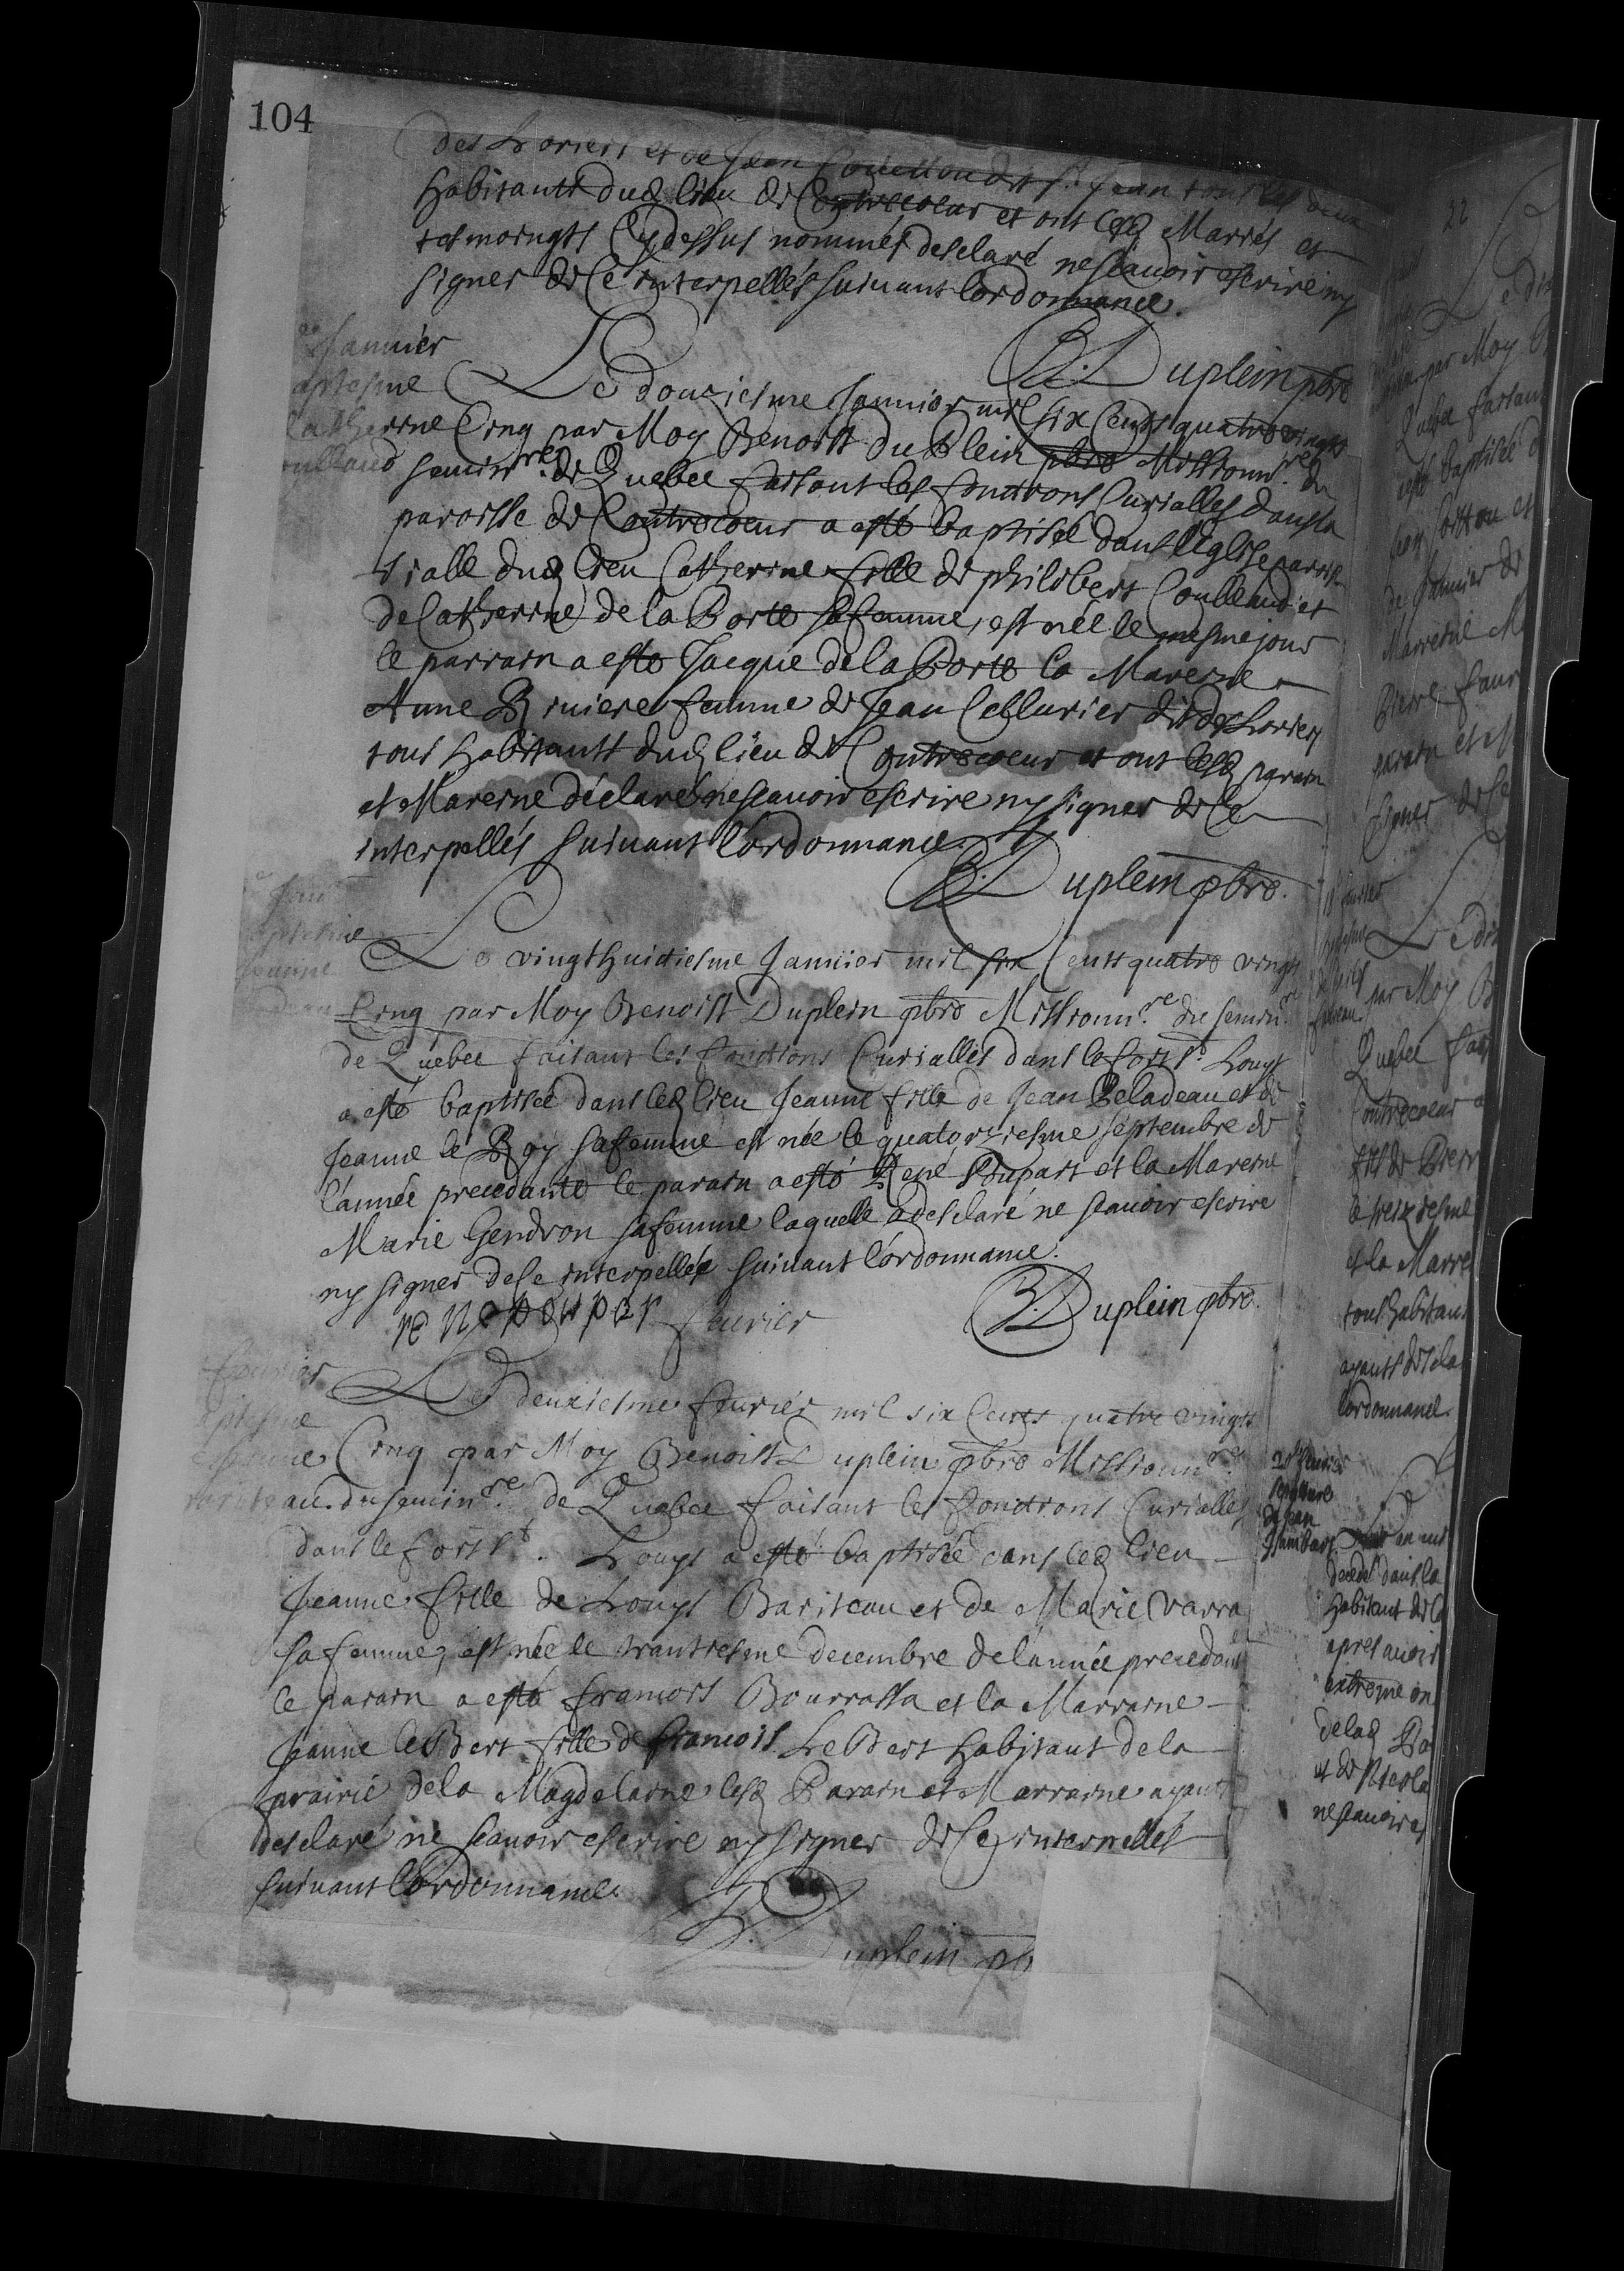 104
des Loriers et de Jean Couillou dit St Jean tous les deux
habitants dud lieu de Contrecoeur et ont lesd Mariés et
tesmoingts Cy dessus nommés desclaré ne scauoir escrire ny
signer de Ce interpellés suiuant lordonnance.
B. Duplein pbre
Januier
aptesme
Catherine
oullaud
Le douziesme Januier mil six Cents quatre vingts
Cinq par Moy Benoist Duplein pbre Missionnre du
seminre de Quebec faisant les fonctions Curialles dans la
paroisse de Contrecoeur a esté baptisée dans l'Eglise parris
sialle dud lieu Catherine fille de philibert Coulleaud et
de Catherine de la Porte sa femme, est née le mesme jour
le parrain a esté Jacque de la Porte la Mareine
Anne Riuiere femme de Jean Cellurier dit des Loriers
tous habitants dud lieu de Contrecoeur et ont lesd parain
et Mareine déclaré ne scauoir escrire ny signer de Ce
interpellés suiuant l'ordonnance.
B. Duplein pbre.
aptesme
Jeanne
adeau
Le vingt huictiesme Januier mil six Cents quatre vingts
Cinq par Moy Benoist Duplein pbre Missionnre du seminre
de Quebec faisant les fonctions Curialles dans le fort St Louys
a esté baptisée dans led lieu Jeanne fille de Jean Beladeau et de
Jeanne le Roy sa femme est née le quatorziesme septembre de
l'année precedante le parain a esté René Poupart et la Mareine
Marie Gendron sa femme laquelle a desclaré ne scauoir escrire
ny signer de Ce interpellée suiuant l'ordonnance.
rene poupar
feurier
B. Duplein pbre.
feurier
aptesme
Jeanne
ariteau
Le deuxiesme feurier mil six Cents quatre vingts
Cinq par Moy Benoist Duplein pbre Missionnre
du seminre de Quebec faisant les fonctions Curialles
dans le fort St. Louys a esté baptisée dans led lieu
Jeanne fille de Louys Bariteau et de Marie Varra
sa femme, est née le trantiesme decembre de lannée precedant
le parain a esté francois Bourrassa et la Marraine
Jeanne le Bert fille de francois Le Bert habitant de la
prairie de la Magdelaine lesd Parain et Marraine ayant
desclaré ne scauoir escrire ny signer de Ce interpellés
suiuant lordonnance
B. Duplein pb
22
Le dix
par Moy B
Quebec faisant
esté baptisée d
de Januier de
Marreine M
Pierre faur
parain et M
signer de Ce
feurier
Le dix
par Moy B
Quebec fais
Contrecoeur a
fils de Pierr
le treiziesme
et la Marre
tous habitan
ayants desla
lordonnance.
20 feurier
sepulture
de Jean
decedé dans la
habitant de la
apres auoir
extreme on
de lad Pa
et de Nicola
ne scauoir es